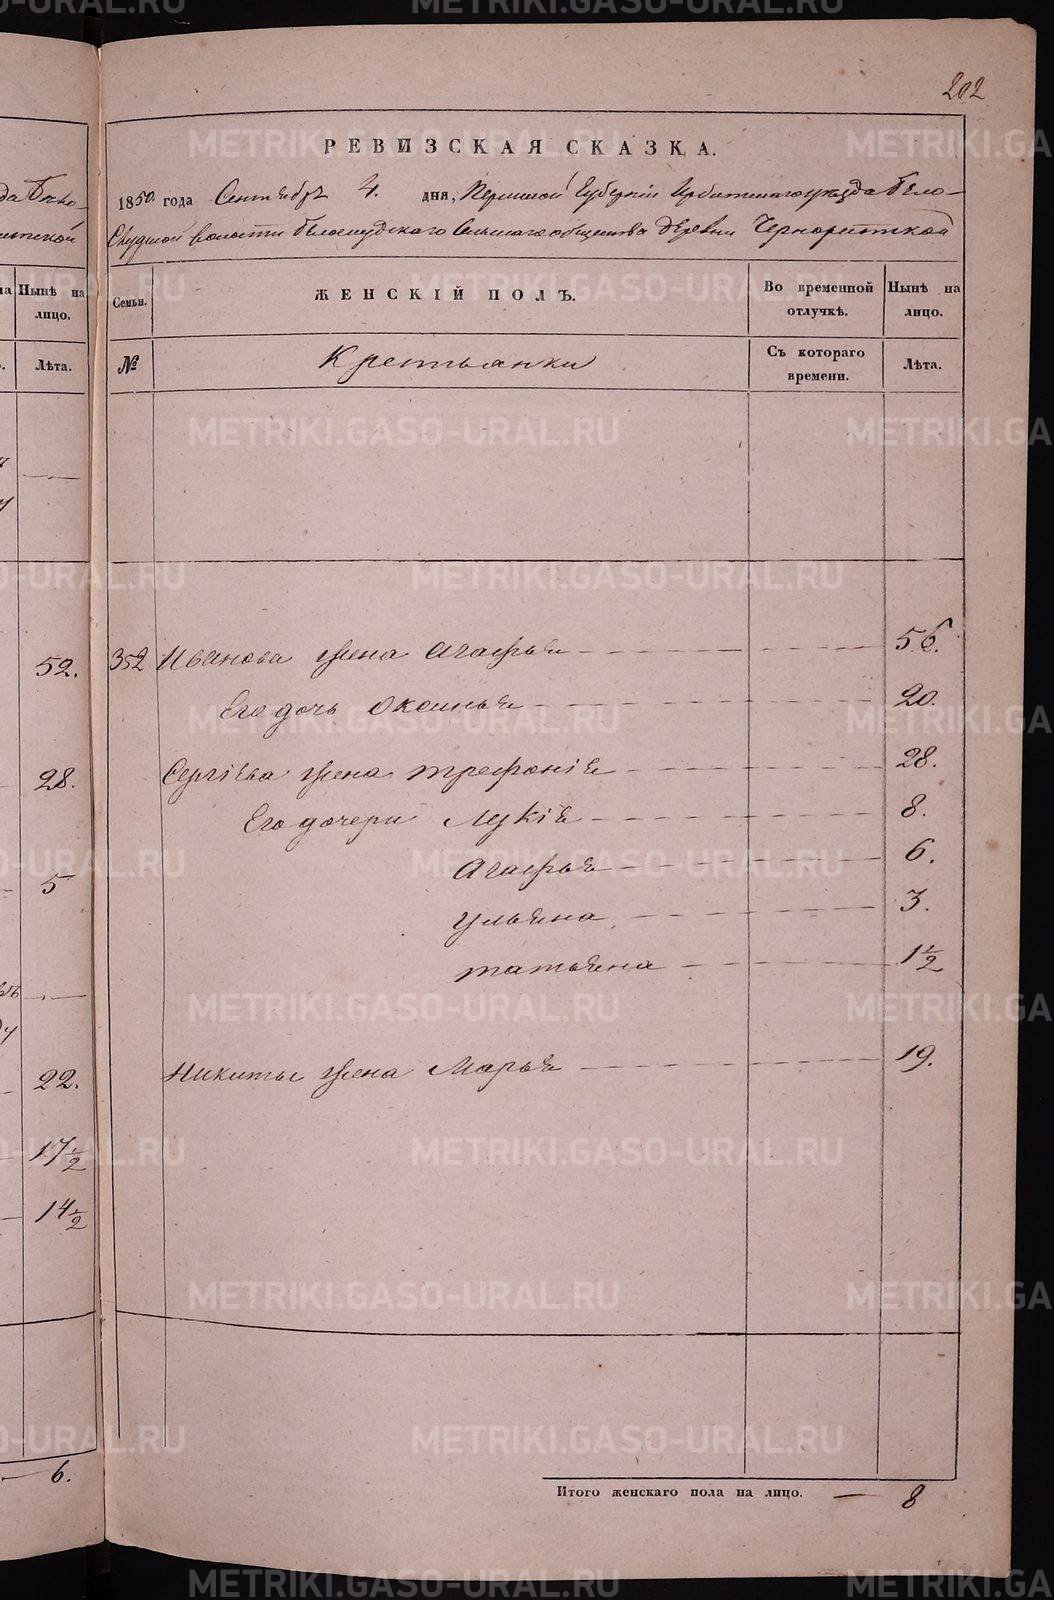 202
РЕВИЗСКАЯ СКАЗКА.
1850 года Сентября 4 дня, Пермской Губерніи Ирбитскаго уезда Бело-
Слудской волости Белослудскаго Сельскаго общества деревни
Семьи.
ЖЕНСКІЙ ПОЛЪ.
Во временной отлучкѣ.
Нынѣ на лицо.
№
Крестьянки
Съ котораго времени.
Лѣта.
352 Иванова жена Агафья 56.
Его дочь Оксинья 20.
Сергіева жена 28.
Его дочери Лукія 8.
Агафья 6.
Ульяна 3.
татьяна 1½
Никиты жена Марья 19.
Итого женскаго пола на лицо. — 8
Нынѣ на лицо.
Лѣта.
52.
28.
5
22.
17½
14½
6.
METRIKI.GASO-URAL.RU